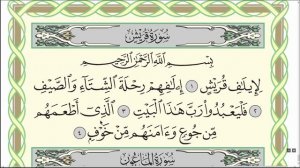 سورة قريش
بسم الله الرحمن الرحيم
لِإِيلَٰفِ قُرَيْشٍ ١ إِۦلَٰفِهِمْ رِحْلَةَ الشِّتَآءِ وَالصَّيْفِ
٢ فَلْيَعْبُدُوا۟ رَبَّ هَٰذَا الْبَيْتِ ٣ الَّذِىٓ أَطْعَمَهُم
مِّن جُوعٍ وَءَامَنَهُم مِّنْ خَوْفٍۭ ٤
سورة الماعون